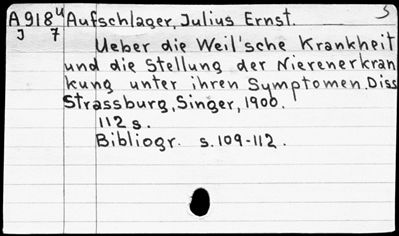 A918u Aufschlager, Julius Ernst. 5
J 7
Ueber die Weil'sche Krankheit
und die Stellung der Nierenerkran
kung unter ihren Symptomen. Diss
Strassburg, Singer, 1900.
112 s.
Bibliogr. s. 109-112.